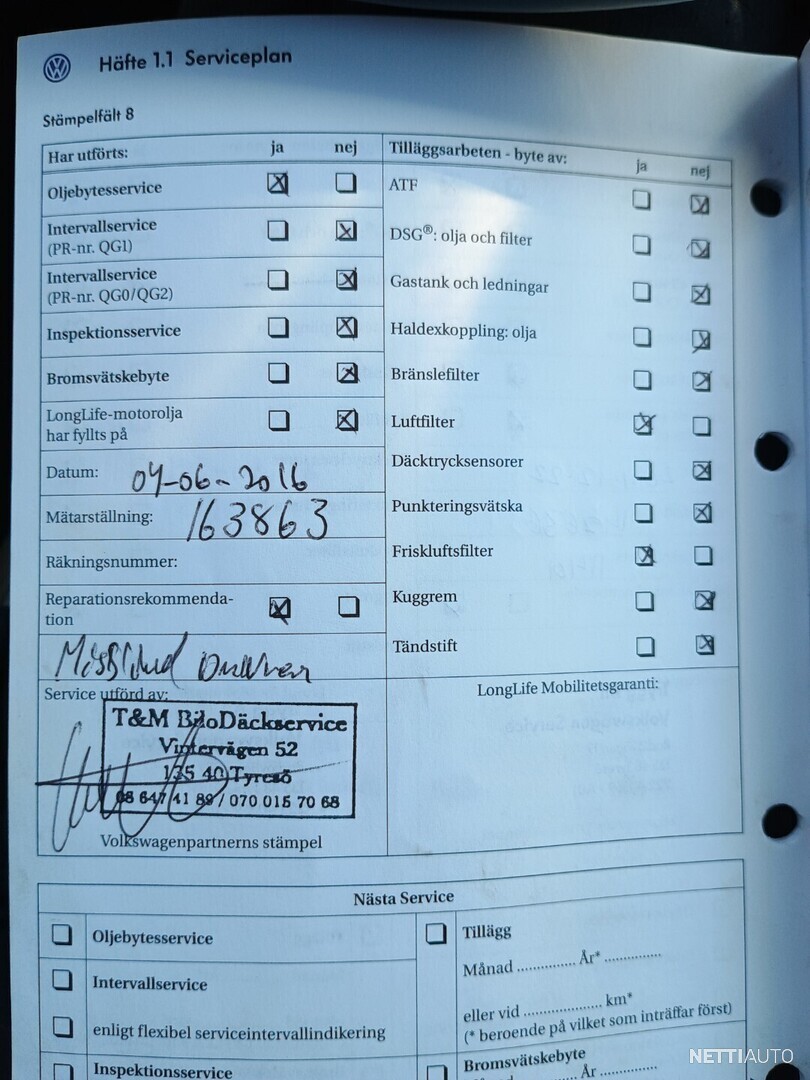 Häfte 1.1 Serviceplan
Stämpelfält 8
Har utförts: ja nej
Oljebytesservice
Intervallservice
(PR-nr. QG1)
Intervallservice
(PR-nr. QG0/QG2)
Inspektionsservice
Bromsvätskebyte
LongLife-motorolja
har fyllts på
Datum: 04-06-2016
Mätarställning: 163863
Räkningsnummer:
Reparationsrekommenda-
tion
Service utförd av:
T&M BiloDäckservice
Vintervägen 52
135 40 Tyresö
08 647 41 89 / 070 015 70 68
Volkswagenpartnerns stämpel
Tilläggsarbeten - byte av: ja nej
ATF
DSG®: olja och filter
Gastank och ledningar
Haldexkoppling: olja
Bränslefilter
Luftfilter
Däcktrycksensorer
Punkteringsvätska
Friskluftsfilter
Kuggrem
Tändstift
LongLife Mobilitetsgaranti:
Nästa Service
Oljebytesservice
Intervallservice
enligt flexibel serviceintervallindikering
Inspektionsservice
Tillägg
Månad .............. År* ..............
eller vid .................. km*
(* beroende på vilket som inträffar först)
Bromsvätskebyte
År ..............
NETTIAUTO